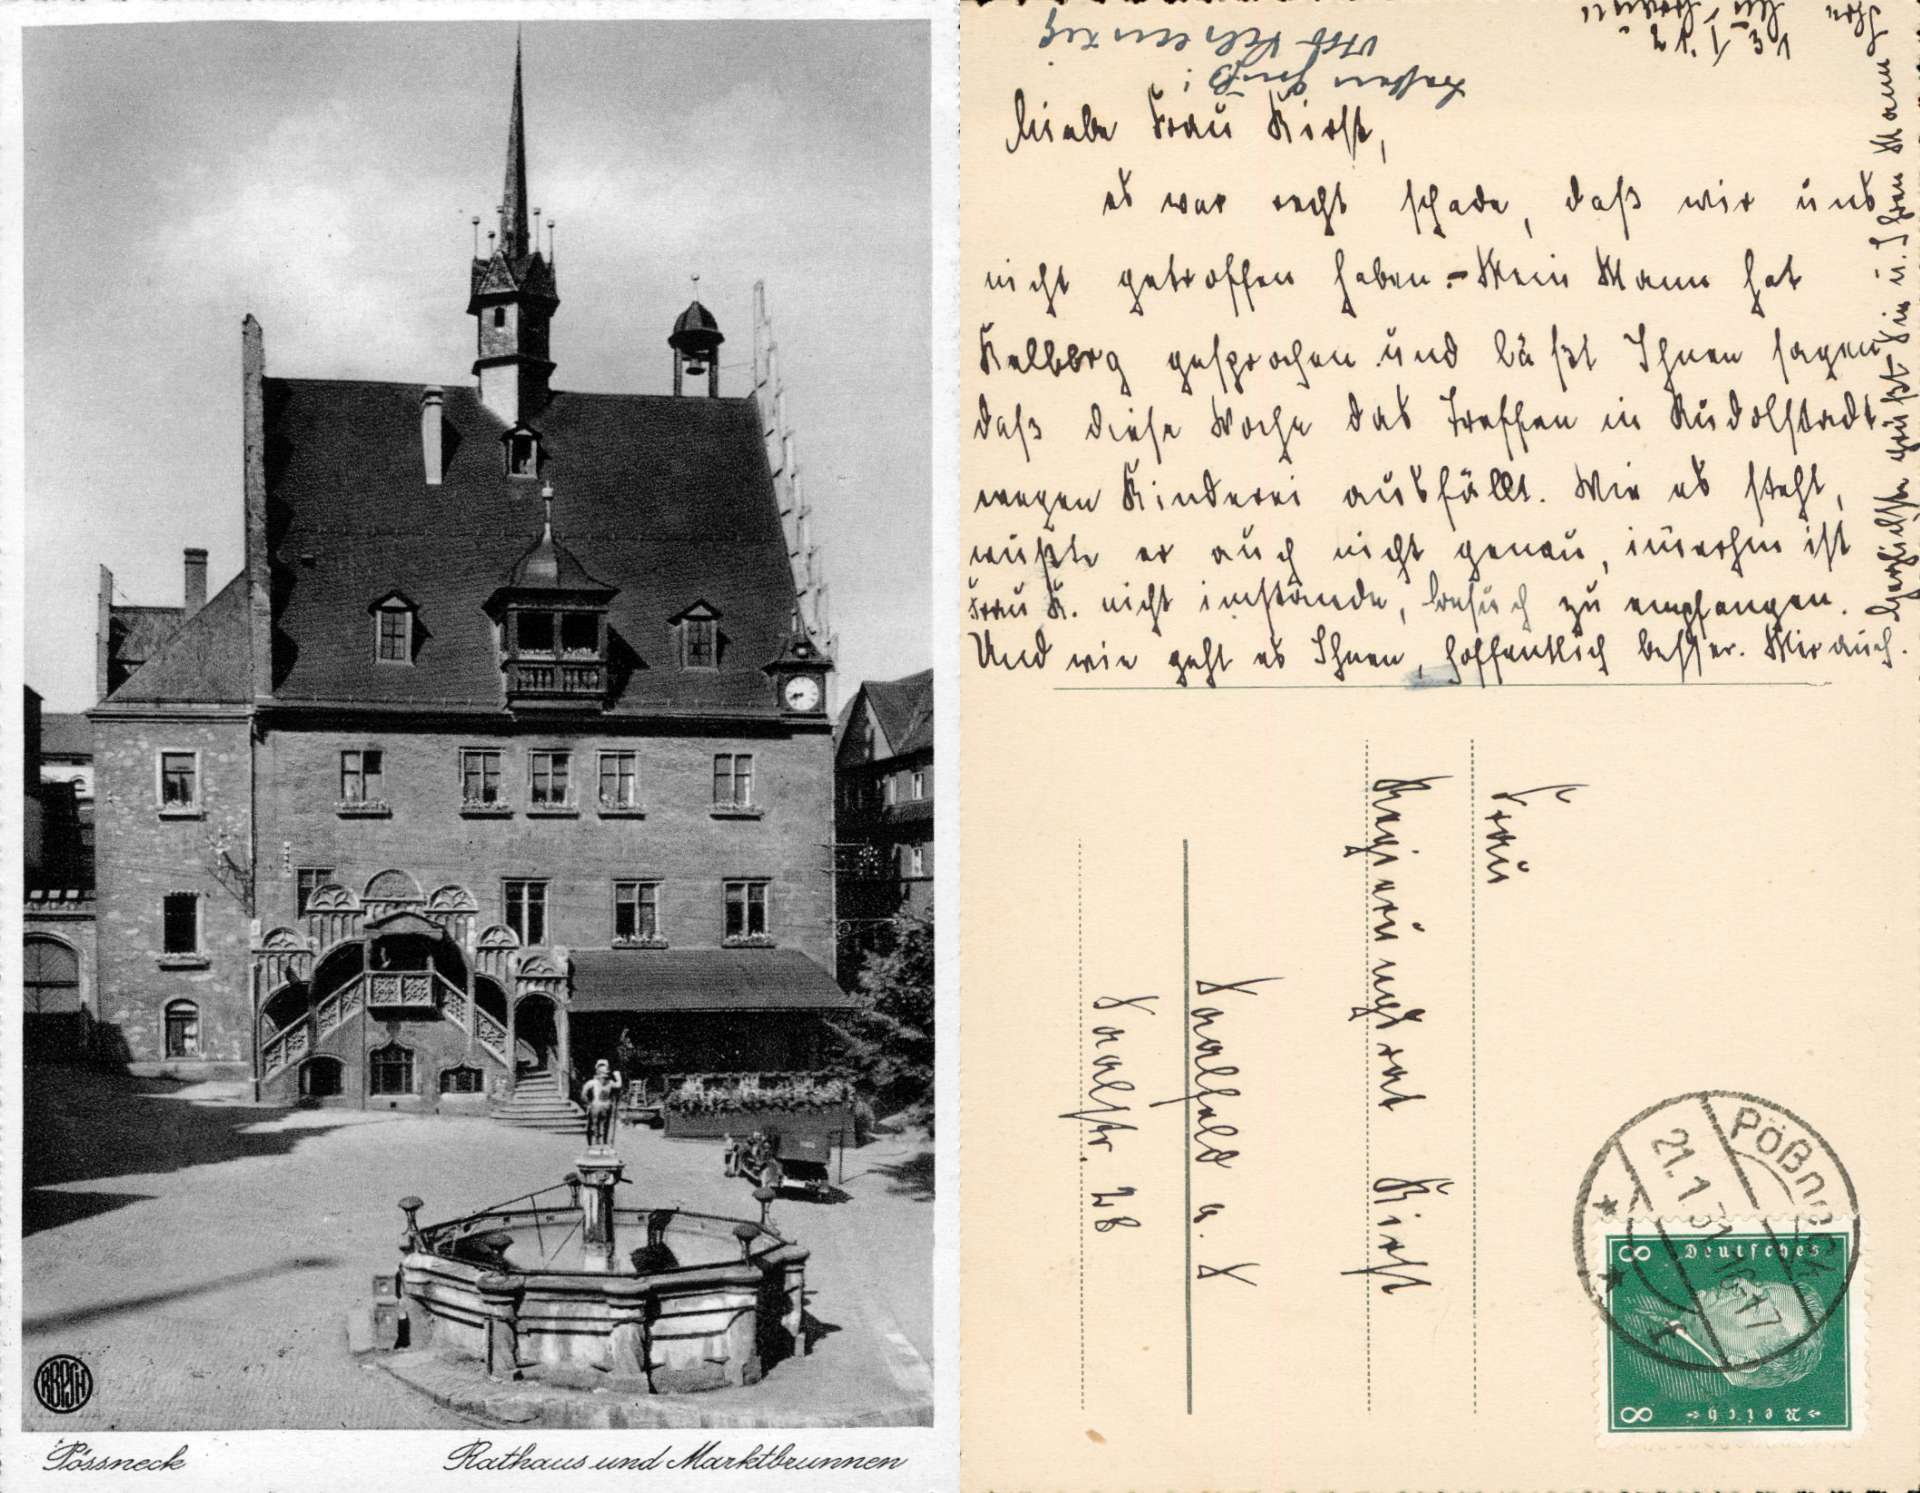 Pössneck
Rathaus und Marktbrunnen
Liebe Frau Kirst,
es war recht schade, daß wir uns
nicht getroffen haben. – Mein Mann hat
gesprochen und läßt Ihnen sagen,
daß diese Woche das Treffen in Rudolstadt
wegen Kinderei ausfällt. Wie es steht,
wußte er auch nicht genau, im̅erhin ist
Frau K. nicht imstande, Besuch zu empfangen.
Und wie geht es Ihnen, hoffentlich besser. Mir auch.
Herzlichst grüßt Sie u. Ihren Mann
Ihre
Besten Gruß!
Frau
Regierungsrat Kirst
Saalfeld a. S
Saalstr. 28
Pößneck
21.1.31 16-17
Deutsches
Reich
8
8